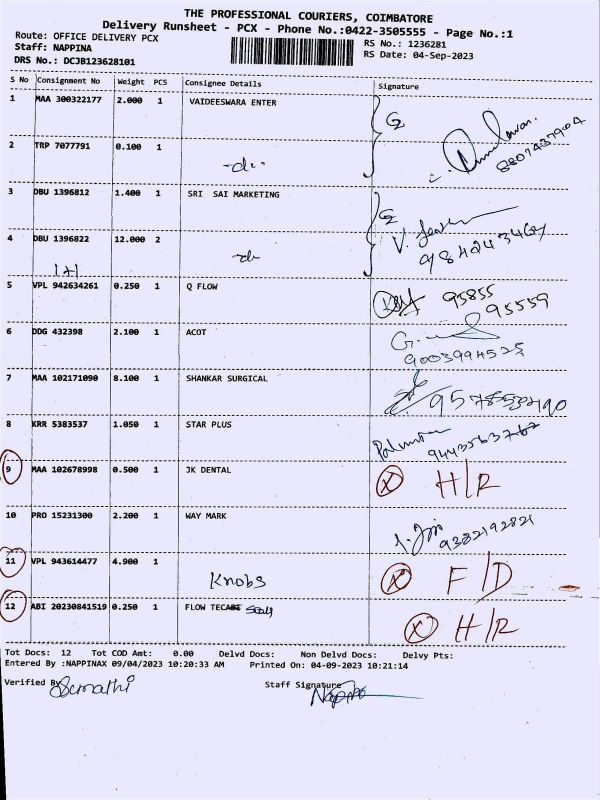 THE PROFESSIONAL COURIERS, COIMBATORE
Delivery Runsheet - PCX - Phone No.:0422-3505555 - Page No.:1
Route: OFFICE DELIVERY PCX RS No.: 1236281
Staff: NAPPINA RS Date: 04-Sep-2023
DRS No.: DCJB123628101
S No Consignment No Weight PCS Consignee Details Signature
1 MAA 300322177 2.000 1 VAIDEESWARA ENTER
8807437904
2 TRP 7077791 0.100 1 -do-
3 DBU 1396812 1.400 1 SRI SAI MARKETING
4 DBU 1396822 12.000 2 -do-
1+1
5 VPL 942634261 0.250 1 Q FLOW 95855
95559
6 DDG 432398 2.100 1 ACOT
9003994525
7 MAA 102171090 8.100 1 SHANKAR SURGICAL
8 KRR 5383537 1.050 1 STAR PLUS
9443563767
9 MAA 102678998 0.500 1 JK DENTAL X H/R
10 PRO 15231300 2.200 1 WAY MARK
9382192821
11 VPL 943614477 4.900 1 Knobs X F/D
12 ABI 20230841519 0.250 1 FLOW TECH X H/R
Tot Docs: 12 Tot COD Amt: 0.00 Delvd Docs: Non Delvd Docs: Delvy Pts:
Entered By :NAPPINAX 09/04/2023 10:20:33 AM Printed On: 04-09-2023 10:21:14
Verified By Sumathi Staff Signature Nappina